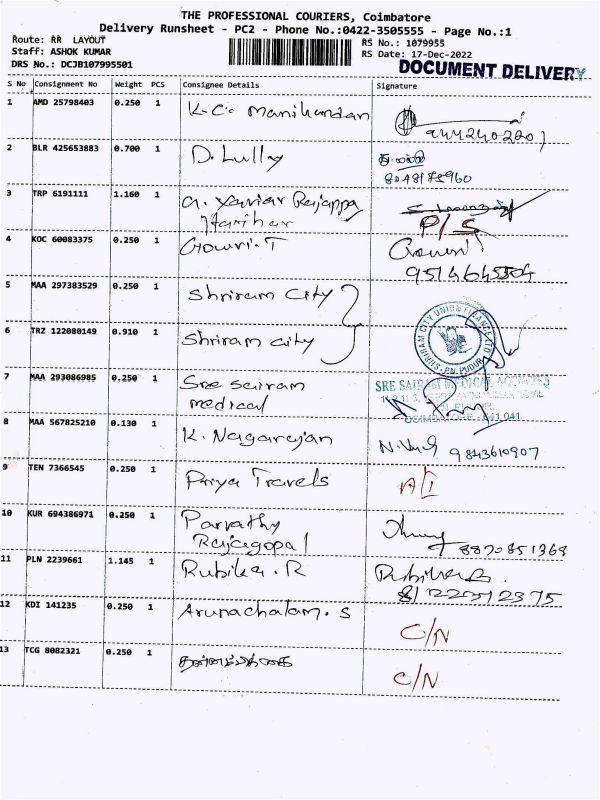 THE PROFESSIONAL COURIERS, Coimbatore
Delivery Runsheet - PC2 - Phone No.:0422-3505555 - Page No.:1
Route: RR LAYOUT
RS No.: 1079955
Staff: ASHOK KUMAR
RS Date: 17-Dec-2022
DRS No.: DCJB107995501
DOCUMENT DELIVERY
S No Consignment No Weight PCS Consignee Details Signature
1 AMD 25798403 0.250 1 K.C. Manikandan
2 BLR 425653883 0.700 1 D. Lully
8048175960
3 TRP 6191111 1.160 1 A. Xavier Rajappa
Harihar P/S
4 KOC 60083375 0.250 1 Gowri.T Gowri
9514645504
5 MAA 297383529 0.250 1 Shriram City
SHRIRAM CITY UNION FINANCE LTD
P.N. PUDUR
6 TRZ 122080149 0.910 1 Shriram City
7 MAA 293086985 0.250 1 Sree Sairam
medical
SRE SAIRAM MEDICAL AGENCIES
8 MAA 567825210 0.130 1 K. Nagarajan 9843610907
9 TEN 7366545 0.250 1 Priya Travels
10 KUR 694386971 0.250 1 Parvathy
Rajagopal 8870851368
11 PLN 2239661 1.145 1 Rubika.R
12 KDI 141235 0.250 1 Arunachalam.S C/N
13 TCG 8082321 0.250 1 C/N